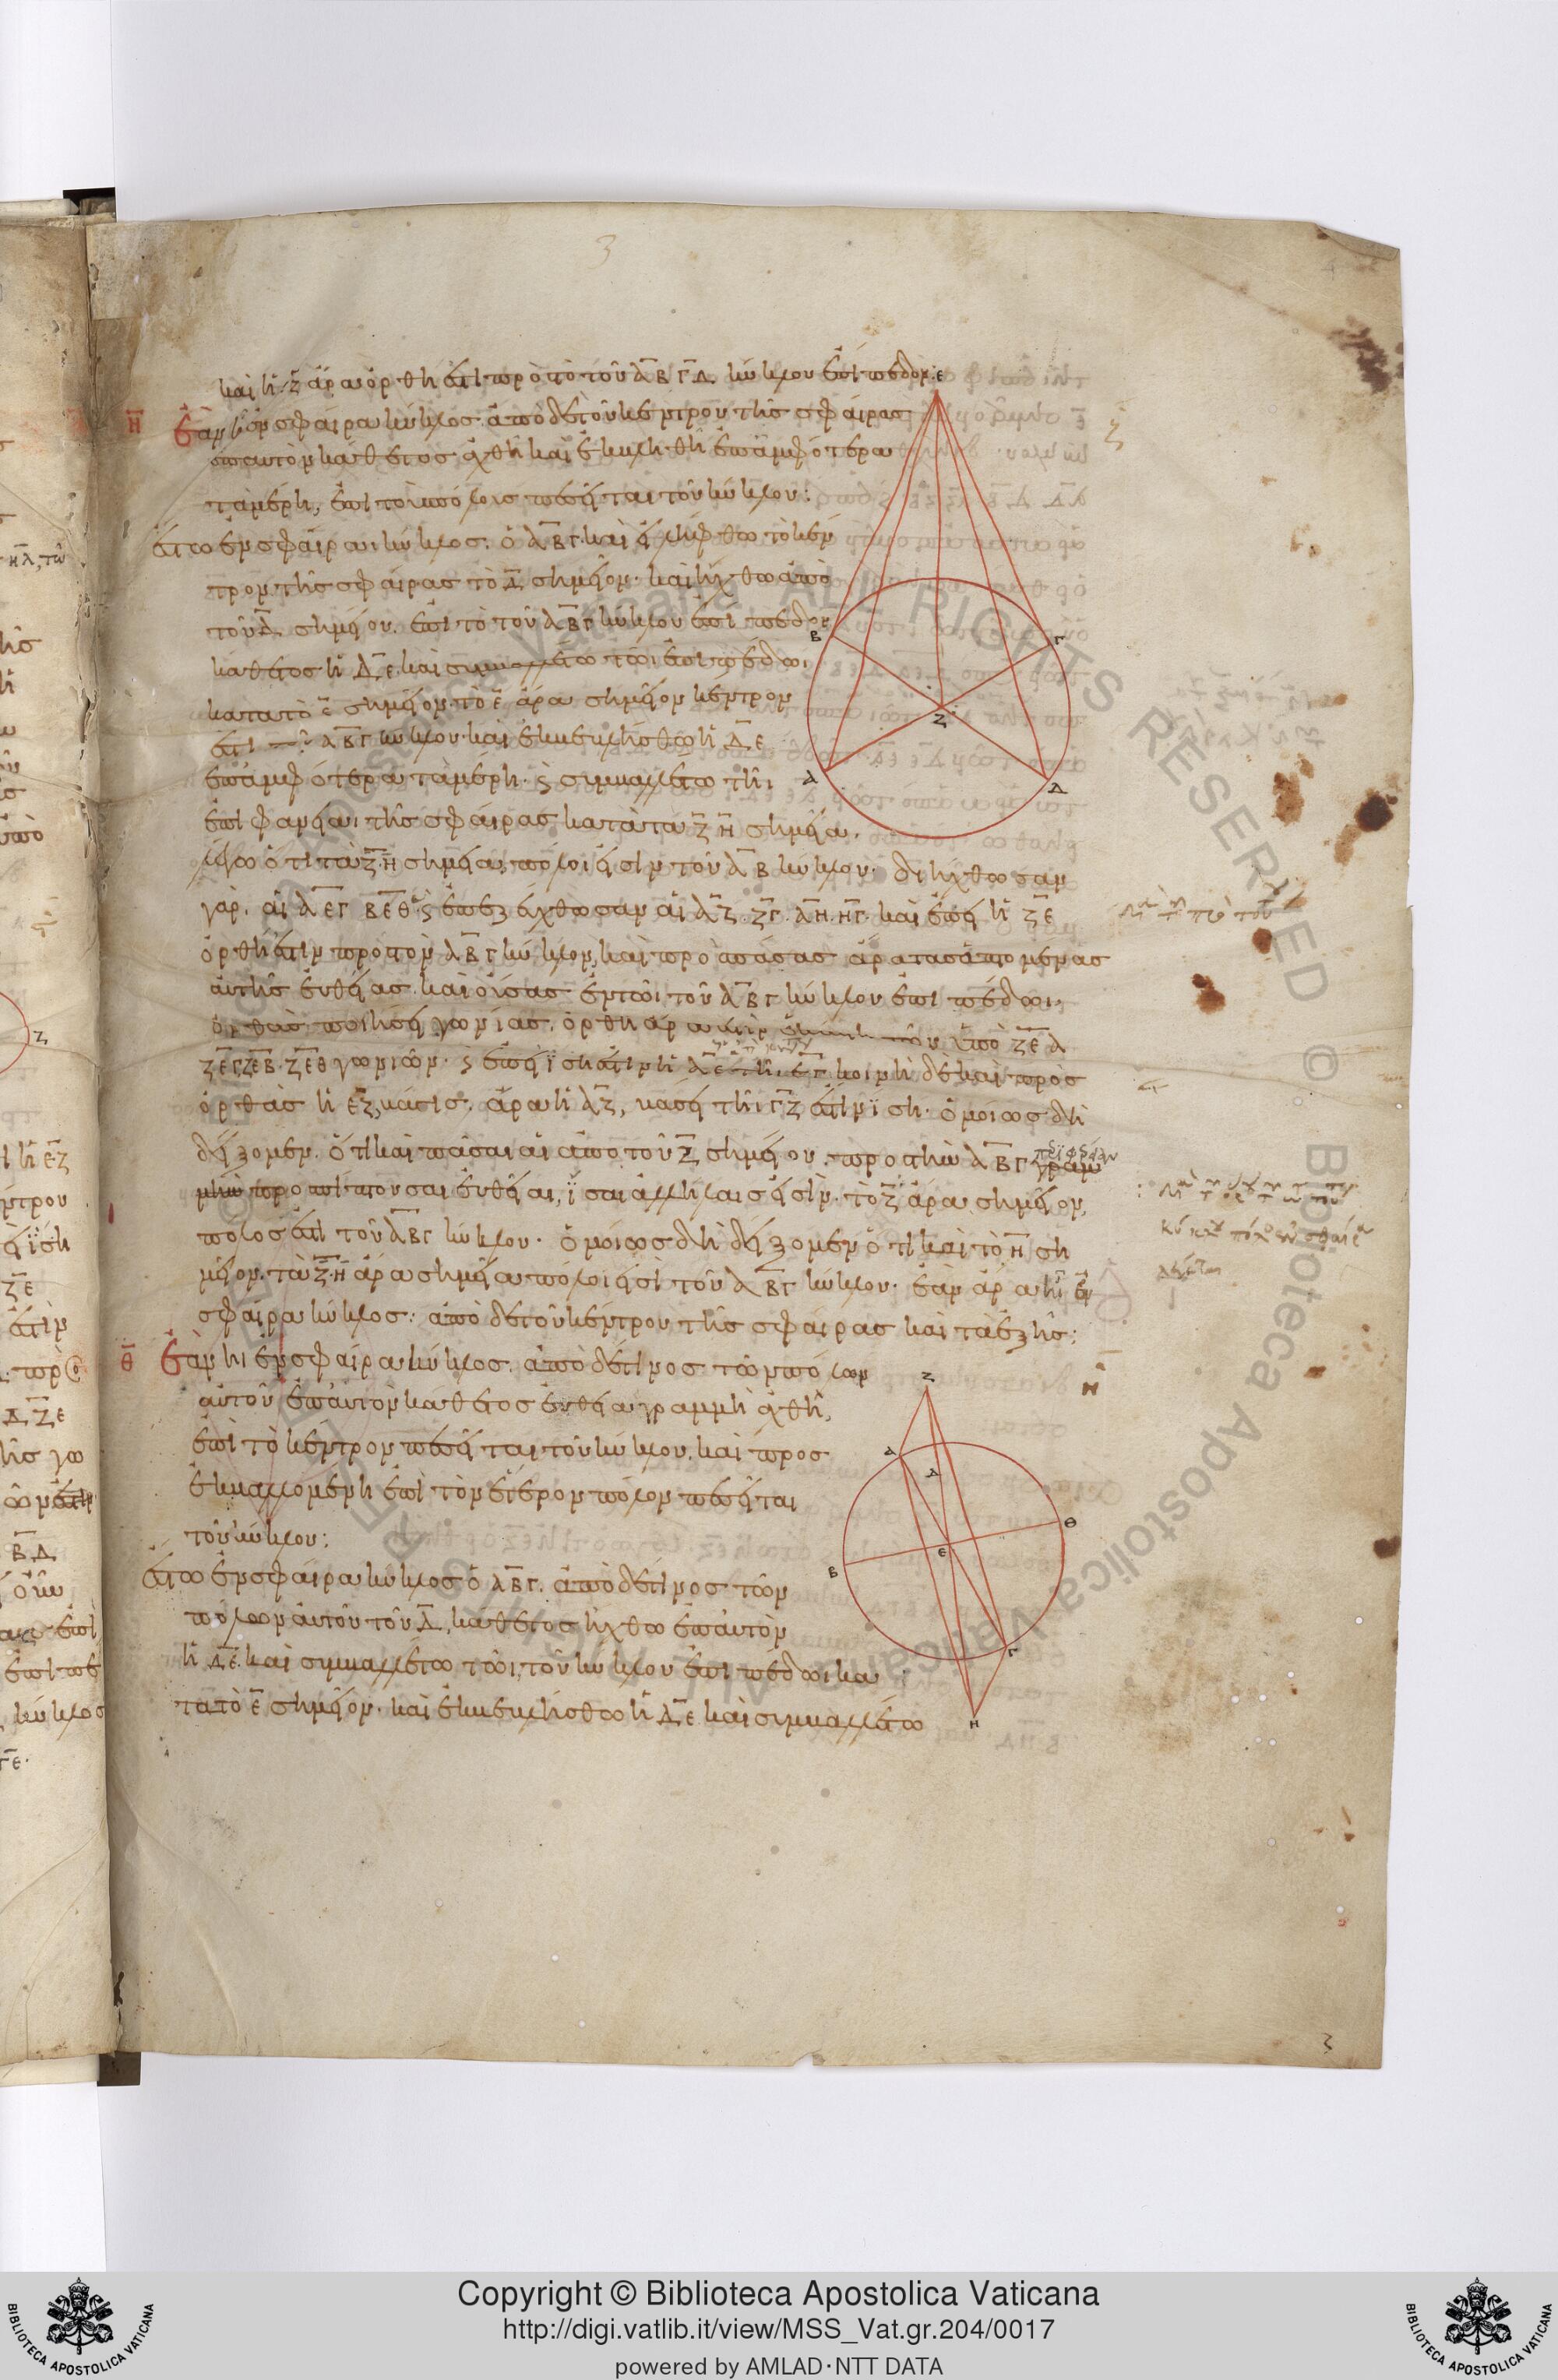 καὶ ἡ ΕΖ ἄρα ὀρθή ἐστι πρὸς τὸ τοῦ ΑΒΓΔ κύκλου ἐπίπεδον
Η Ἐὰν ᾖ ἐν σφαίρα κύκλος. ἀπὸ δὲ τοῦ κέντρου τῆς σφαίρας
ἐπ αὐτὸν κάθετος ἀχθῆ καὶ ἐκβληθῆ ἐπ ἀμφότερα
τὰ μέρη, ἐπὶ τοὺς πόλους πεσεῖται τοῦ κύκλου:
ἔστω ἐν σφαίραι κύκλος. ὁ ΑΒΓ καὶ εἰλήφθω τὸ κέν
τρον τῆς σφαίρας τὸ Δ σημεῖον. καὶ ἤχθω ἀπὸ
τοῦ Δ σημείου. ἐπὶ τὸ τοῦ ΑΒΓ κύκλου ἐπίπεδον
κάθετος ἡ ΔΕ. καὶ συμβαλλέτω τῶι ἐπιπέδωι
κατὰ τὸ Ε σημεῖον. τὸ Ε ἄρα σημεῖον κέντρον
ἐστὶ ΑΒΓ κύκλου. καὶ ἐκβεβλήσθω ἡ ΔΕ
ἐπ ἀμφότερα τὰ μέρη. ϛ συμβαλλέτω τῆι
ἐπιφανείαι τῆς σφαίρας κατὰ τὰ Ζ Η σημεῖα.
λέγω ὅτι τὰ Ζ Η σημεῖα, πόλοι εἰσὶν τοῦ ΑΒ κύκλου. διήχθωσαν
γὰρ. αἱ ΑΕΓ ΒΕΘ. ϛ ἐπεζεύχθωσαν αἱ ΑΖ. ΖΓ. ΑΗ. ΗΓ. καὶ ἐπεὶ ἡ ΖΕ
ὀρθή ἐστιν πρὸς τὸν ΑΒΓ κύκλον, καὶ πρὸς πάσας ἄρα τὰς ἁπτομένας
αὐτῆς εὐθείας. καὶ οὔσας ἐν τῶι τοῦ ΑΒΓ κύκλου ἐπιπέδωι,
ὀρθὰς ποιήσει γωνίας. ὀρθὴ ἄρα ἐστὶν τῶν ὑπὸ ΖΕΑ
ΖΕΓ ΖΕΒ. ΖΕΘ γωνιῶν. ϛ ἐπεὶ ἴση ἐστὶν ἡ ΑΕ τῆι ΕΓ κοινὴ δὲ καὶ πρὸς
ὀρθὰς ἡ ΕΖ, βάσις. ἄρα ἡ ΑΖ, βάσει τῆι ΓΖ ἐστὶν ἴση. ὁμοίως δὴ
δείξομεν. ὅτι καὶ πᾶσαι αἱ ἀπὸ τοῦ Ζ σημείου. πρὸς τὴν ΑΒΓ γραμ
περιφέρειαν
μὴν προσπίπτουσαι εὐθεῖαι, ἴσαι ἀλλήλαις εἰσὶν. τὸ Ζ ἄρα σημεῖον,
πόλος ἐστὶ τοῦ ΑΒΓ κύκλου. ὁμοίως δὴ δείξομεν ὅτι καὶ τὸ Η ση
μεῖον. τὰ Ζ. Η ἄρα σημεῖα πόλοι εἰσὶ τοῦ ΑΒΓ κύκλου. ἐὰν ἄρα ἦ ἐν
σφαίρα κύκλος: ἀπὸ δὲ τοῦ κέντρου τῆς σφαίρας καὶ τὰ ἑξῆς:
Θ Ἐὰν ἦι ἐν σφαίρα κύκλος. ἀπὸ δέ τινος τῶν πόλων
αὐτοῦ ἐπ αὐτὸν κάθετος εὐθεῖα γραμμὴ ἀχθῆ,
ἐπὶ τὸ κέντρον πεσεῖται τοῦ κύκλου. καὶ προσ
εκβαλλομένη ἐπὶ τὸν ἕτερον πόλον πεσεῖται
τοῦ κύκλου:
ἔστω ἐν σφαίρα κύκλος ὁ ΑΒΓ. ἀπὸ δέ τινος τῶν
πόλων αὐτοῦ τοῦ Δ, κάθετος ἤχθω ἐπ αὐτὸν
ἡ ΔΕ. καὶ συμβαλλέτω τῶι τοῦ κύκλου ἐπιπέδωι κα
τὰ τὸ Ε σημεῖον. καὶ ἐκβεβλήσθω ἡ ΔΕ καὶ συμβαλλέτω
Ε
Β
Γ
Ζ
Α
Δ
Ζ
Α
Δ
Θ
Ε
Β
Γ
Η
Copyright © Biblioteca Apostolica Vaticana
http://digi.vatlib.it/view/MSS_Vat.gr.204/0017
powered by AMLAD·NTT DATA
BIBLIOTECA APOSTOLICA VATICANA
BIBLIOTECA APOSTOLICA VATICANA